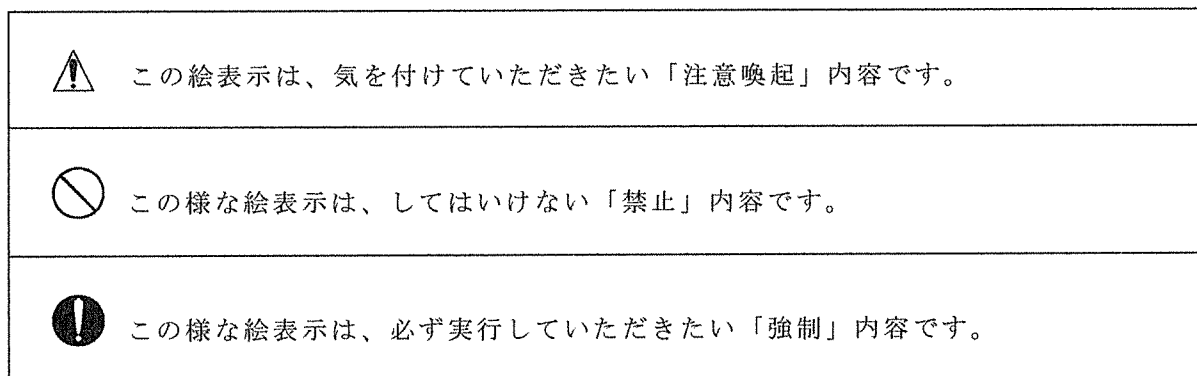 この絵表示は、気を付けていただきたい「注意喚起」内容です。
この様な絵表示は、してはいけない「禁止」内容です。
この様な絵表示は、必ず実行していただきたい「強制」内容です。